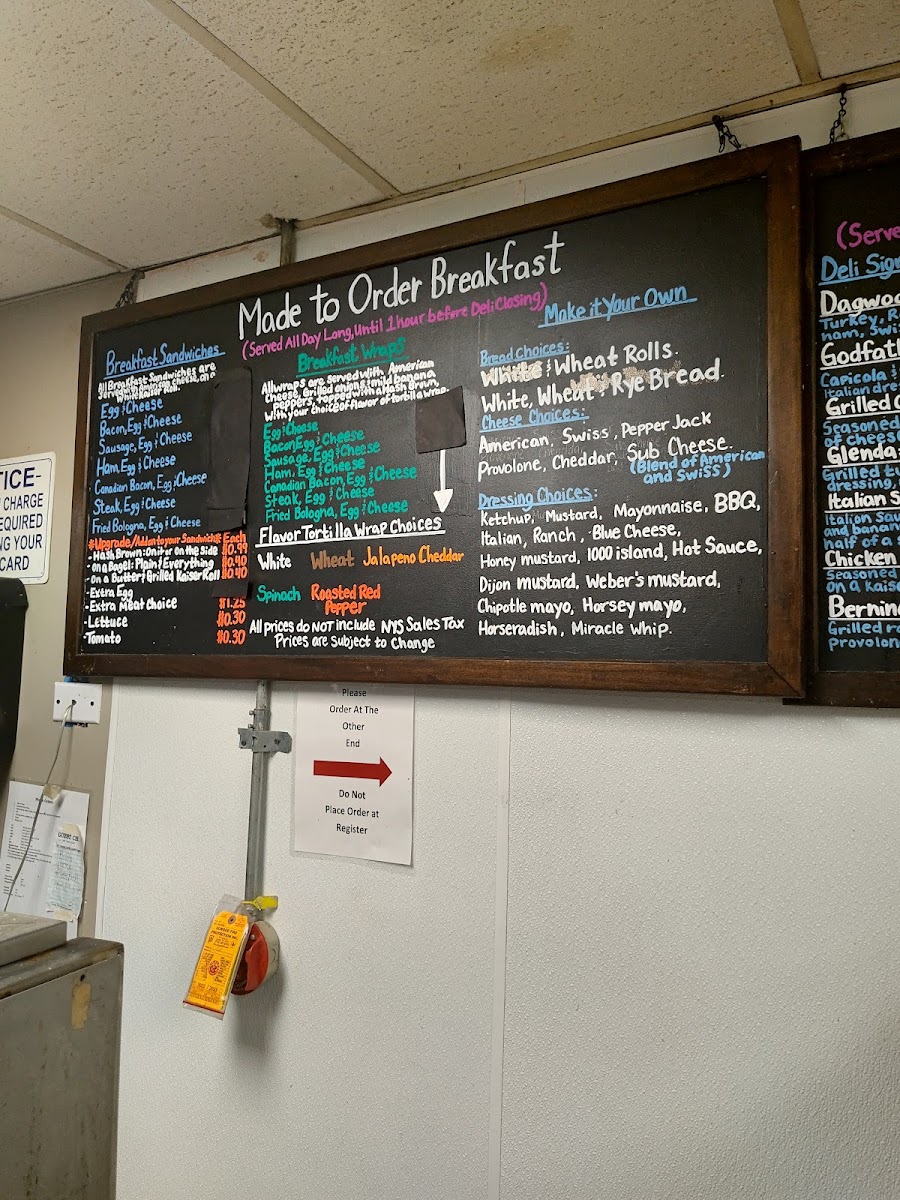 Made to Order Breakfast
(Served All Day Long, Until 1 hour before Deli Closing)
Breakfast Sandwiches
All Breakfast Sandwiches are
Served with American Cheese, on a
White Kaiser Roll.
Egg & Cheese
Bacon, Egg & Cheese
Sausage, Egg & Cheese
Ham, Egg & Cheese
Canadian Bacon, Egg & Cheese
Steak, Egg & Cheese
Fried Bologna, Egg & Cheese
*Upgrade/Add on to your Sandwich Each
-Hash Brown: On it or on the side $0.99
-On a Bagel: Plain & Everything $0.40
-On a Butter & Grilled Kaiser Roll $0.40
-Extra Egg
-Extra Meat Choice $1.25
-Lettuce $0.30
-Tomato $0.30
Breakfast Wraps
All wraps are served with American
Cheese, Grilled onions & mild banana
peppers, topped with a Hash Brown,
with your choice of flavor of tortilla wrap.
Egg & Cheese
Bacon, Egg & Cheese
Sausage, Egg & Cheese
Ham, Egg & Cheese
Canadian Bacon, Egg & Cheese
Steak, Egg & Cheese
Fried Bologna, Egg & Cheese
Flavor Tortilla Wrap Choices
White Wheat Jalapeno Cheddar
Spinach Roasted Red
Pepper
All prices do NOT include NYS Sales Tax
Prices are Subject to Change
Make it Your Own
Bread Choices:
White & Wheat Rolls.
White, Wheat, Rye Bread.
Cheese Choices:
American, Swiss, Pepper Jack
Provolone, Cheddar, Sub Cheese.
(Blend of American
and Swiss)
Dressing Choices:
Ketchup, Mustard, Mayonnaise, BBQ,
Italian, Ranch, Blue Cheese,
Honey mustard, 1000 island, Hot Sauce,
Dijon mustard, Weber's mustard,
Chipotle mayo, Horsey mayo,
Horseradish, Miracle Whip.
(Serve
Deli Sig
Dagwoo
Turkey, R
ham, Swis
Godfath
Capicola &
Italian dre
Grilled C
Seasoned
of chees
Glenda
Grilled tu
dressing,
Italian S
Italian Sau
and banan
half of a s
Chicken
Seasoned
on a kais
Bernin
Grilled ro
provolon
TICE-
CHARGE
REQUIRED
NG YOUR
CARD
Please
Order At The
Other
End
Do Not
Place Order at
Register